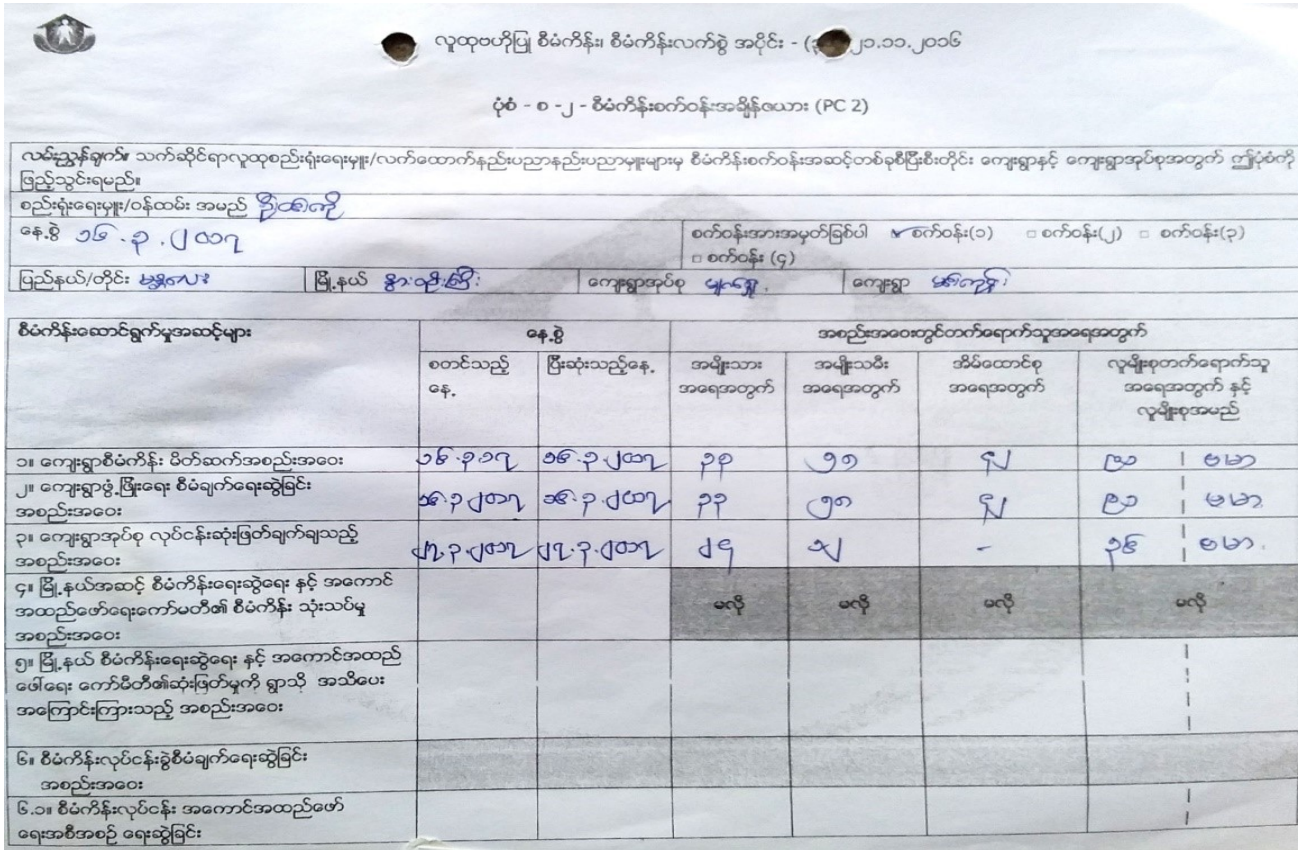 လူထုဗဟိုပြု စီမံကိန်း၊ စီမံကိန်းလက်စွဲ အပိုင်း - (၃ ၂၁.၁၁.၂၀၁၆
ပုံစံ - စ -၂ - စီမံကိန်းစက်ဝန်းအချိန်ဇယား (PC 2)
လမ်းညွှန်ချက်။ သက်ဆိုင်ရာလူထုစည်းရုံးရေးမှူး/လက်ထောက်နည်းပညာနည်းပညာမှူးများမှ စီမံကိန်းစက်ဝန်းအဆင့်တစ်ခုစီပြီးစီးတိုင်း ကျေးရွာနှင့် ကျေးရွာအုပ်စုအတွက် ဤပုံစံကို
ဖြည့်သွင်းရမည်။
စည်းရုံးရေးမှူး/ဝန်ထမ်း အမည်
နေ့စွဲ ၁၆.၃.၂၀၁၇ စက်ဝန်းအားအမှတ်ခြစ်ပါ စက်ဝန်း(၁) □ စက်ဝန်း(၂) □ စက်ဝန်း(၃)
□ စက်ဝန်း (၄)
ပြည်နယ်/တိုင်း မန္တလေး မြို့နယ် ကျေးရွာအုပ်စု ကျေးရွာ
စီမံကိန်းဆောင်ရွက်မှုအဆင့်များ နေ့စွဲ အစည်းအဝေးတွင်တက်ရောက်သူအရေအတွက်
စတင်သည့် ပြီးဆုံးသည့်နေ့ အမျိုးသား အမျိုးသမီး အိမ်ထောင်စု လူမျိုးစုတက်ရောက်သူ
နေ့ အရေအတွက် အရေအတွက် အရေအတွက် အရေအတွက် နှင့်
လူမျိုးစုအမည်
၁။ ကျေးရွာစီမံကိန်း မိတ်ဆက်အစည်းအဝေး ၁၆.၃.၁၇ ၁၆.၃.၂၀၁၇ ၃၃ ၅၈ ၉၁ ဗမာ
၂။ ကျေးရွာဖွံ့ဖြိုးရေး စီမံချက်ရေးဆွဲခြင်း
အစည်းအဝေး ၁၆.၃.၂၀၁၇ ၁၆.၃.၂၀၁၇ ၃၃ ၅၈ ၉၁ ဗမာ
၃။ ကျေးရွာအုပ်စု လုပ်ငန်းဆုံးဖြတ်ချက်ချသည့်
အစည်းအဝေး ၂၇.၃.၂၀၁၇ ၂၇.၃.၂၀၁၇ ၂၄ - ၃၆ ဗမာ
၄။ မြို့နယ်အဆင့် စီမံကိန်းရေးဆွဲရေး နှင့် အကောင်
အထည်ဖော်ရေးကော်မတီ၏ စီမံကိန်း သုံးသပ်မှု မလို မလို မလို မလို
အစည်းအဝေး
၅။ မြို့နယ် စီမံကိန်းရေးဆွဲရေး နှင့် အကောင်အထည်
ဖေါ်ရေး ကော်မီတီ၏ဆုံးဖြတ်မှုကို ရွာသို့ အသိပေး
အကြောင်းကြားသည့် အစည်းအဝေး
၆။ စီမံကိန်းလုပ်ငန်းခွဲစီမံချက်ရေးဆွဲခြင်း
အစည်းအဝေး
၆.၁။ စီမံကိန်းလုပ်ငန်း အကောင်အထည်ဖော်
ရေးအစီအစဉ် ရေးဆွဲခြင်း